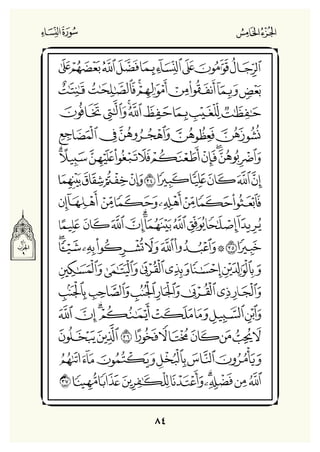 الجزء الخامس سورة النساء
ٱلرِّجَالُ قَوَّٰمُونَ عَلَى ٱلنِّسَآءِ بِمَا فَضَّلَ ٱللَّهُ بَعْضَهُمْ عَلَىٰ
بَعْضٍ وَبِمَآ أَنفَقُوا۟ مِنْ أَمْوَٰلِهِمْ ۚ فَٱلصَّٰلِحَٰتُ قَٰنِتَٰتٌ
حَٰفِظَٰتٌ لِّلْغَيْبِ بِمَا حَفِظَ ٱللَّهُ ۚ وَٱلَّٰتِى تَخَافُونَ
نُشُوزَهُنَّ فَعِظُوهُنَّ وَٱهْجُرُوهُنَّ فِى ٱلْمَضَاجِعِ
وَٱضْرِبُوهُنَّ ۖ فَإِنْ أَطَعْنَكُمْ فَلَا تَبْغُوا۟ عَلَيْهِنَّ سَبِيلًا ۗ
إِنَّ ٱللَّهَ كَانَ عَلِيًّا كَبِيرًا ٣٤ وَإِنْ خِفْتُمْ شِقَاقَ بَيْنِهِمَا
فَٱبْعَثُوا۟ حَكَمًا مِّنْ أَهْلِهِۦ وَحَكَمًا مِّنْ أَهْلِهَآ إِن
يُرِيدَآ إِصْلَٰحًا يُوَفِّقِ ٱللَّهُ بَيْنَهُمَآ ۗ إِنَّ ٱللَّهَ كَانَ عَلِيمًا
خَبِيرًا ٣٥ ۞ وَٱعْبُدُوا۟ ٱللَّهَ وَلَا تُشْرِكُوا۟ بِهِۦ شَيْـًٔا ۖ
وَبِٱلْوَٰلِدَيْنِ إِحْسَٰنًا وَبِذِى ٱلْقُرْبَىٰ وَٱلْيَتَٰمَىٰ وَٱلْمَسَٰكِينِ
وَٱلْجَارِ ذِى ٱلْقُرْبَىٰ وَٱلْجَارِ ٱلْجُنُبِ وَٱلصَّاحِبِ بِٱلْجَنۢبِ
وَٱبْنِ ٱلسَّبِيلِ وَمَا مَلَكَتْ أَيْمَٰنُكُمْ ۗ إِنَّ ٱللَّهَ
لَا يُحِبُّ مَن كَانَ مُخْتَالًا فَخُورًا ٣٦ ٱلَّذِينَ يَبْخَلُونَ
وَيَأْمُرُونَ ٱلنَّاسَ بِٱلْبُخْلِ وَيَكْتُمُونَ مَآ ءَاتَىٰهُمُ
ٱللَّهُ مِن فَضْلِهِۦ ۗ وَأَعْتَدْنَا لِلْكَٰفِرِينَ عَذَابًا مُّهِينًا ٣٧
٨٤